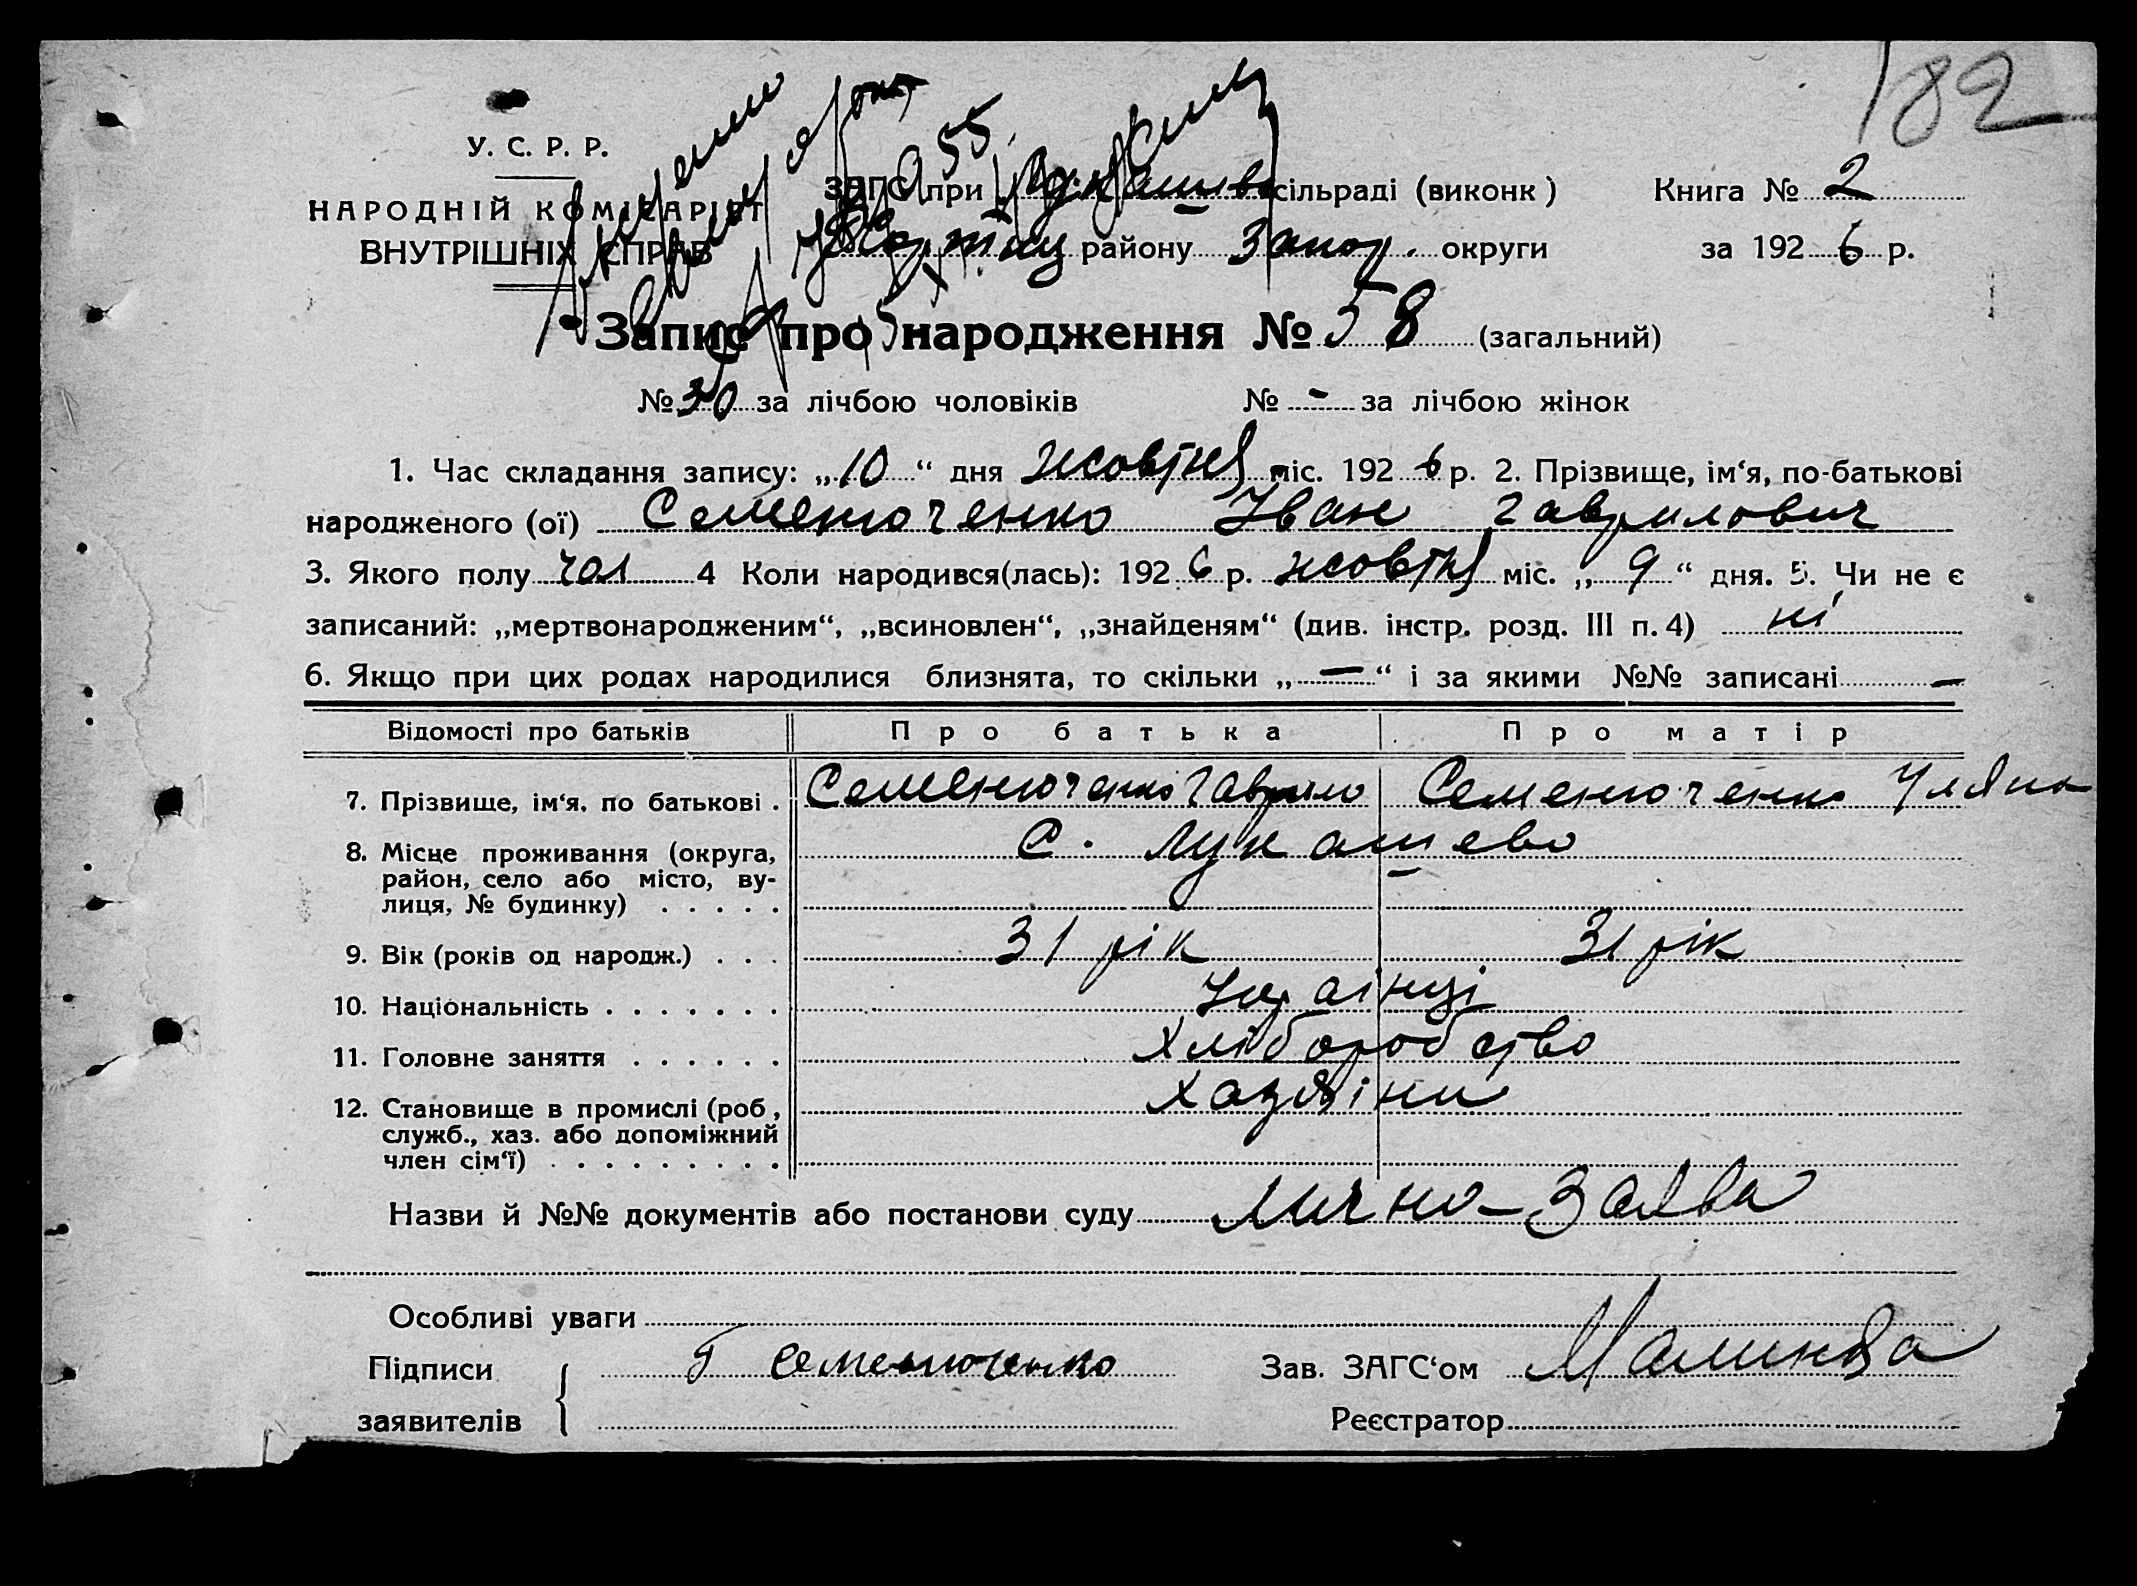 182
У. С. Р. Р.
НАРОДНІЙ КОМІСАРІЯТ
ВНУТРІШНІХ СПРАВ
ЗАГС при Лукашівс сільраді (виконк ) Книга № 2
району Запор. округи за 192 6 р.
Запис про народження № 58 (загальний)
№ 30 за лічбою чоловіків № - за лічбою жінок
1. Час складання запису: „ 10 “ дня жовтня міс. 192 6 р. 2. Прізвище, ім‘я, по-батькові
народженого (ої) Семенюченко Іван Гаврилович
3. Якого полу чол 4 Коли народився(лась): 192 6 р. жовтня міс. „ 9 “ дня. 5. Чи не є
записаний: „мертвонародженим“, „всиновлен“, „знайденям“ (див. інстр. розд. III п. 4) ні
6. Якщо при цих родах народилися близнята, то скільки „ — “ і за якими №№ записані —
Відомості про батьків Про батька Про матір
7. Прізвище, ім‘я, по батькові . Семенюченко Гаврило Семенюченко Уляна
8. Місце проживання (округа, С. Лукашево
район, село або місто, ву-
лиця, № будинку) . . . . .
9. Вік (років од народж.) . . . 31 рік 31 рік
10. Національність . . . . . . . Українці
11. Головне заняття . . . . . . Хліборобство
12. Становище в промислі (роб, Хазяіни
служб., хаз. або допоміжний
член сім‘ї) . . . . . . . . .
Назви й №№ документів або постанови суду Лично-Заява
Особливі уваги
Підписи Г Семенюченко Зав. ЗАГС‘ом
заявителів Реєстратор